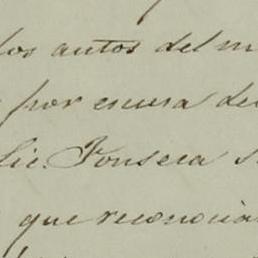 los autos del m
por escusa de
Lic. Fonseca s
que reconocia